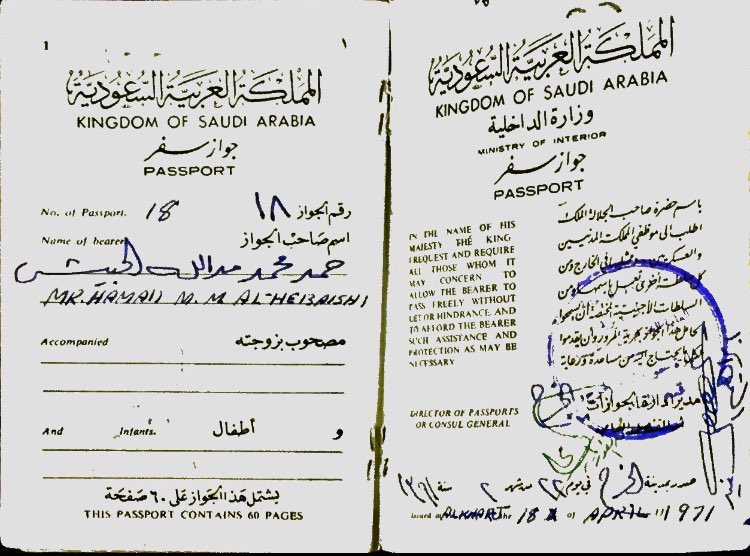 1 ١
المملكة العربية السعودية
KINGDOM OF SAUDI ARABIA
جواز سفر
PASSPORT
No. of Passport. 18 ١٨ رقم الجواز
Name of bearer اسم صاحب الجواز
حمد محمد مدالله الحبيشي
MR. HAMAD M. M AL-HEBAISHI
Accompanied مصحوب بزوجته
And Infants. أطفال و
يشتمل هذا الجواز على ٦٠ صفحة
THIS PASSPORT CONTAINS 60 PAGES
المملكة العربية السعودية
KINGDOM OF SAUDI ARABIA
وزارة الداخلية
MINISTRY OF INTERIOR
جواز سفر
PASSPORT
IN THE NAME OF HIS
MAJESTY THE KING
I REQUEST AND REQUIRE
ALL THOSE WHOM IT
MAY CONCERN TO
ALLOW THE BEARER TO
PASS FREELY WITHOUT
LET OR HINDRANCE AND
TO AFFORD THE BEARER
SUCH ASSISTANCE AND
PROTECTION AS MAY BE
NECESSARY
باسم حضرة صاحب الجلالة الملك
اطلب الى موظفي المملكة المدنيين
والعسكريين وممثليها في الخارج ومن
كل سلطة أخرى تعمل باسمها ومن
السلطات الأجنبية المختصة أن يسمحوا
لحامل هذا الجواز بحرية المرور وأن يقدموا
له كل ما يحتاج اليه من مساعدة ورعاية
DIRECTOR OF PASSPORTS
OR CONSUL GENERAL
مدير ادارة الجوازات
أو القنصل العام
صدر بمدينة الخرج في يوم ٢٢ من شهر ٢ سنة ١٣٩١
Issued at ALKHARJ the 18 of APRIL 1971